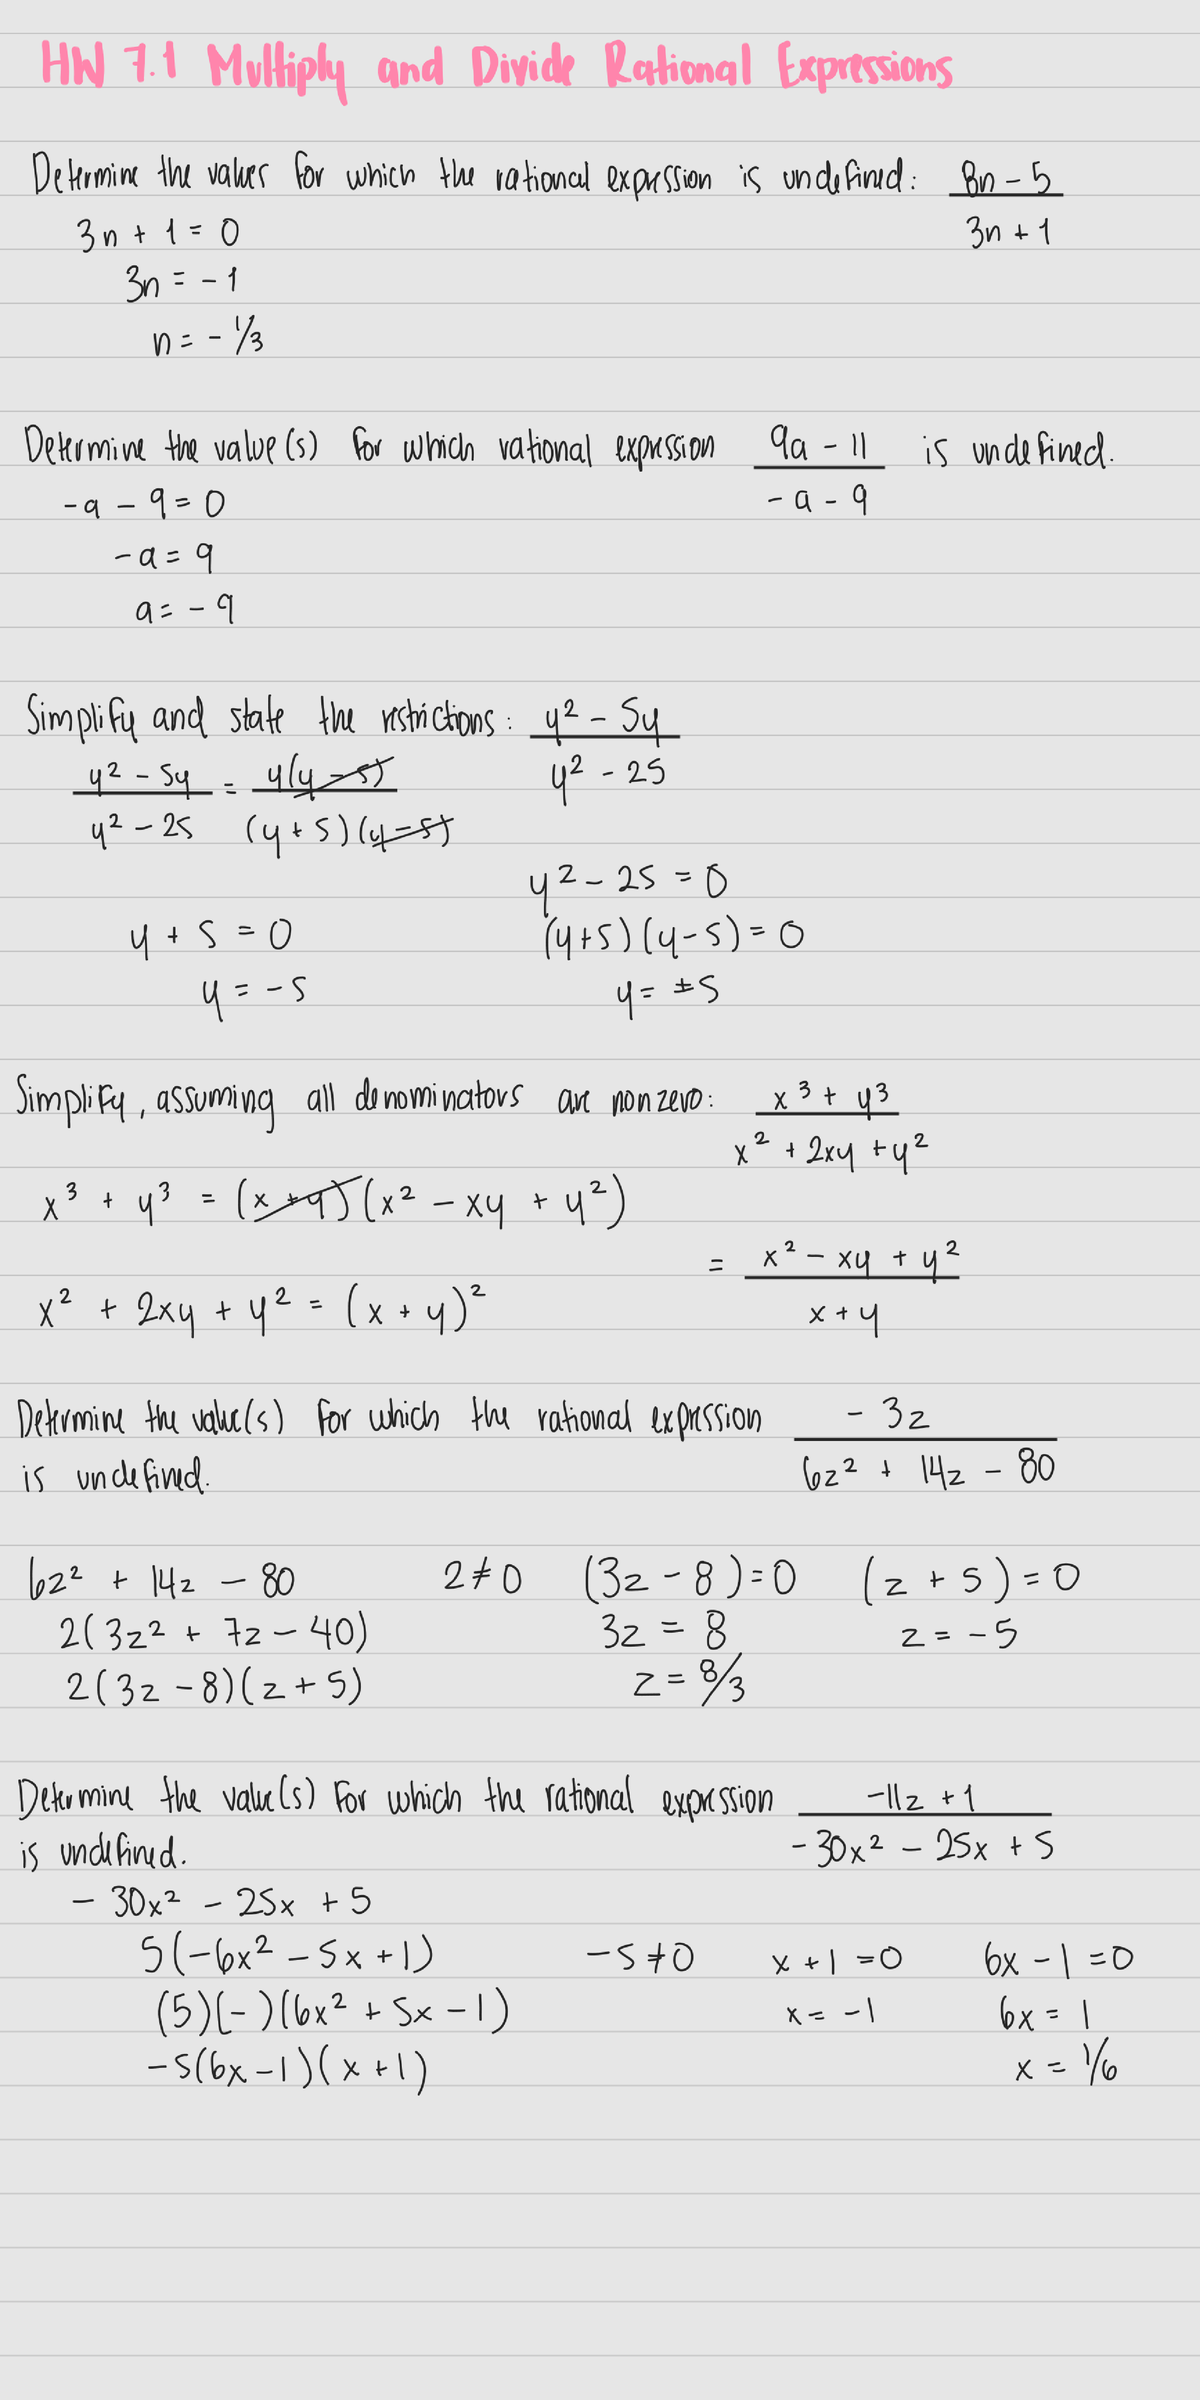 HW 7.1 Multiply and Divide Rational Expressions
Determine the values for which the rational expression is undefined: 8n - 5
3n + 1 = 0 3n + 1
3n = - 1
n = - 1/3
Determine the value(s) for which rational expression 9a - 11 is undefined.
-a - 9 = 0 - a - 9
-a = 9
a = - 9
Simplify and state the restrictions: y² - 5y
y² - 5y = y(y - 5) y² - 25
y² - 25 (y + 5)(y - 5)
y² - 25 = 0
y + 5 = 0 (y+5)(y-5) = 0
y = -5 y = ±5
Simplify, assuming all denominators are nonzero: x³ + y³
x² + 2xy + y²
x³ + y³ = (x + y)(x² - xy + y²)
= x² - xy + y²
x² + 2xy + y² = (x + y)² x + y
Determine the value(s) for which the rational expression - 3z
is undefined. 6z² + 14z - 80
6z² + 14z - 80 2 ≠ 0 (3z - 8) = 0 (z + 5) = 0
2(3z² + 7z - 40) 3z = 8 z = -5
2(3z - 8)(z + 5) z = 8/3
Determine the value(s) for which the rational expression -11z + 1
is undefined. - 30x² - 25x + 5
- 30x² - 25x + 5
5(-6x² - 5x + 1) -5 ≠ 0 x + 1 = 0 6x - 1 = 0
(5)(-)(6x² + 5x - 1) x = -1 6x = 1
-5(6x - 1)(x + 1) x = 1/6